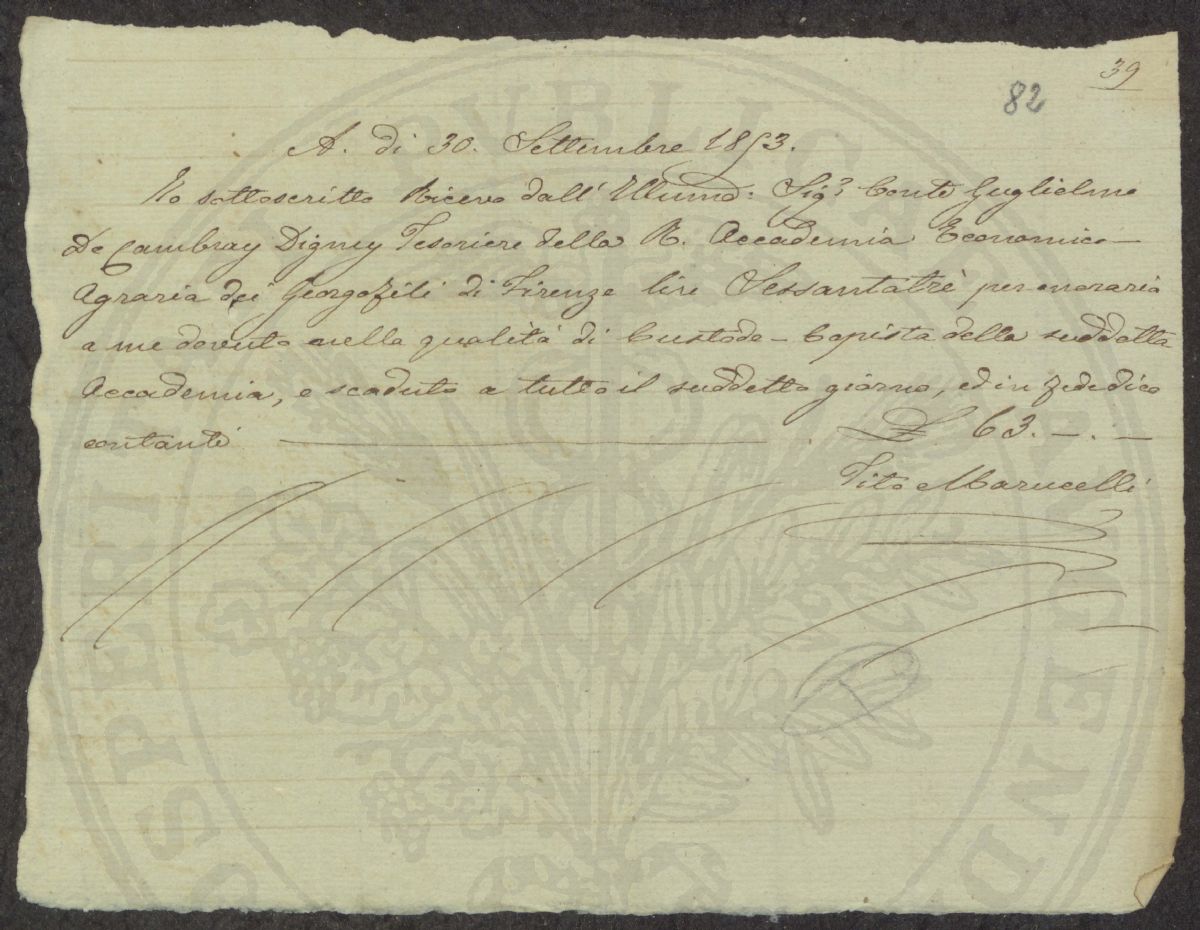 39
82
A. di 30. Settembre 1853.
Io sottoscritto Ricevo dall' Illumo: Sigr Conte Guglielmo
De Cambray Digney Tesoriere della R. Accademia Economico-
Agraria dei Georgofili di Firenze lire Sessantatrè per onorario
a me dovuto nella qualità di Custode-Copista della suddetta
Accademia, e scaduto a tutto il suddetto giorno, ed in fede dico
contanti £ 63.-.-
Tito Marucelli
PROSPERITATI PUBLICAE AUGENDAE